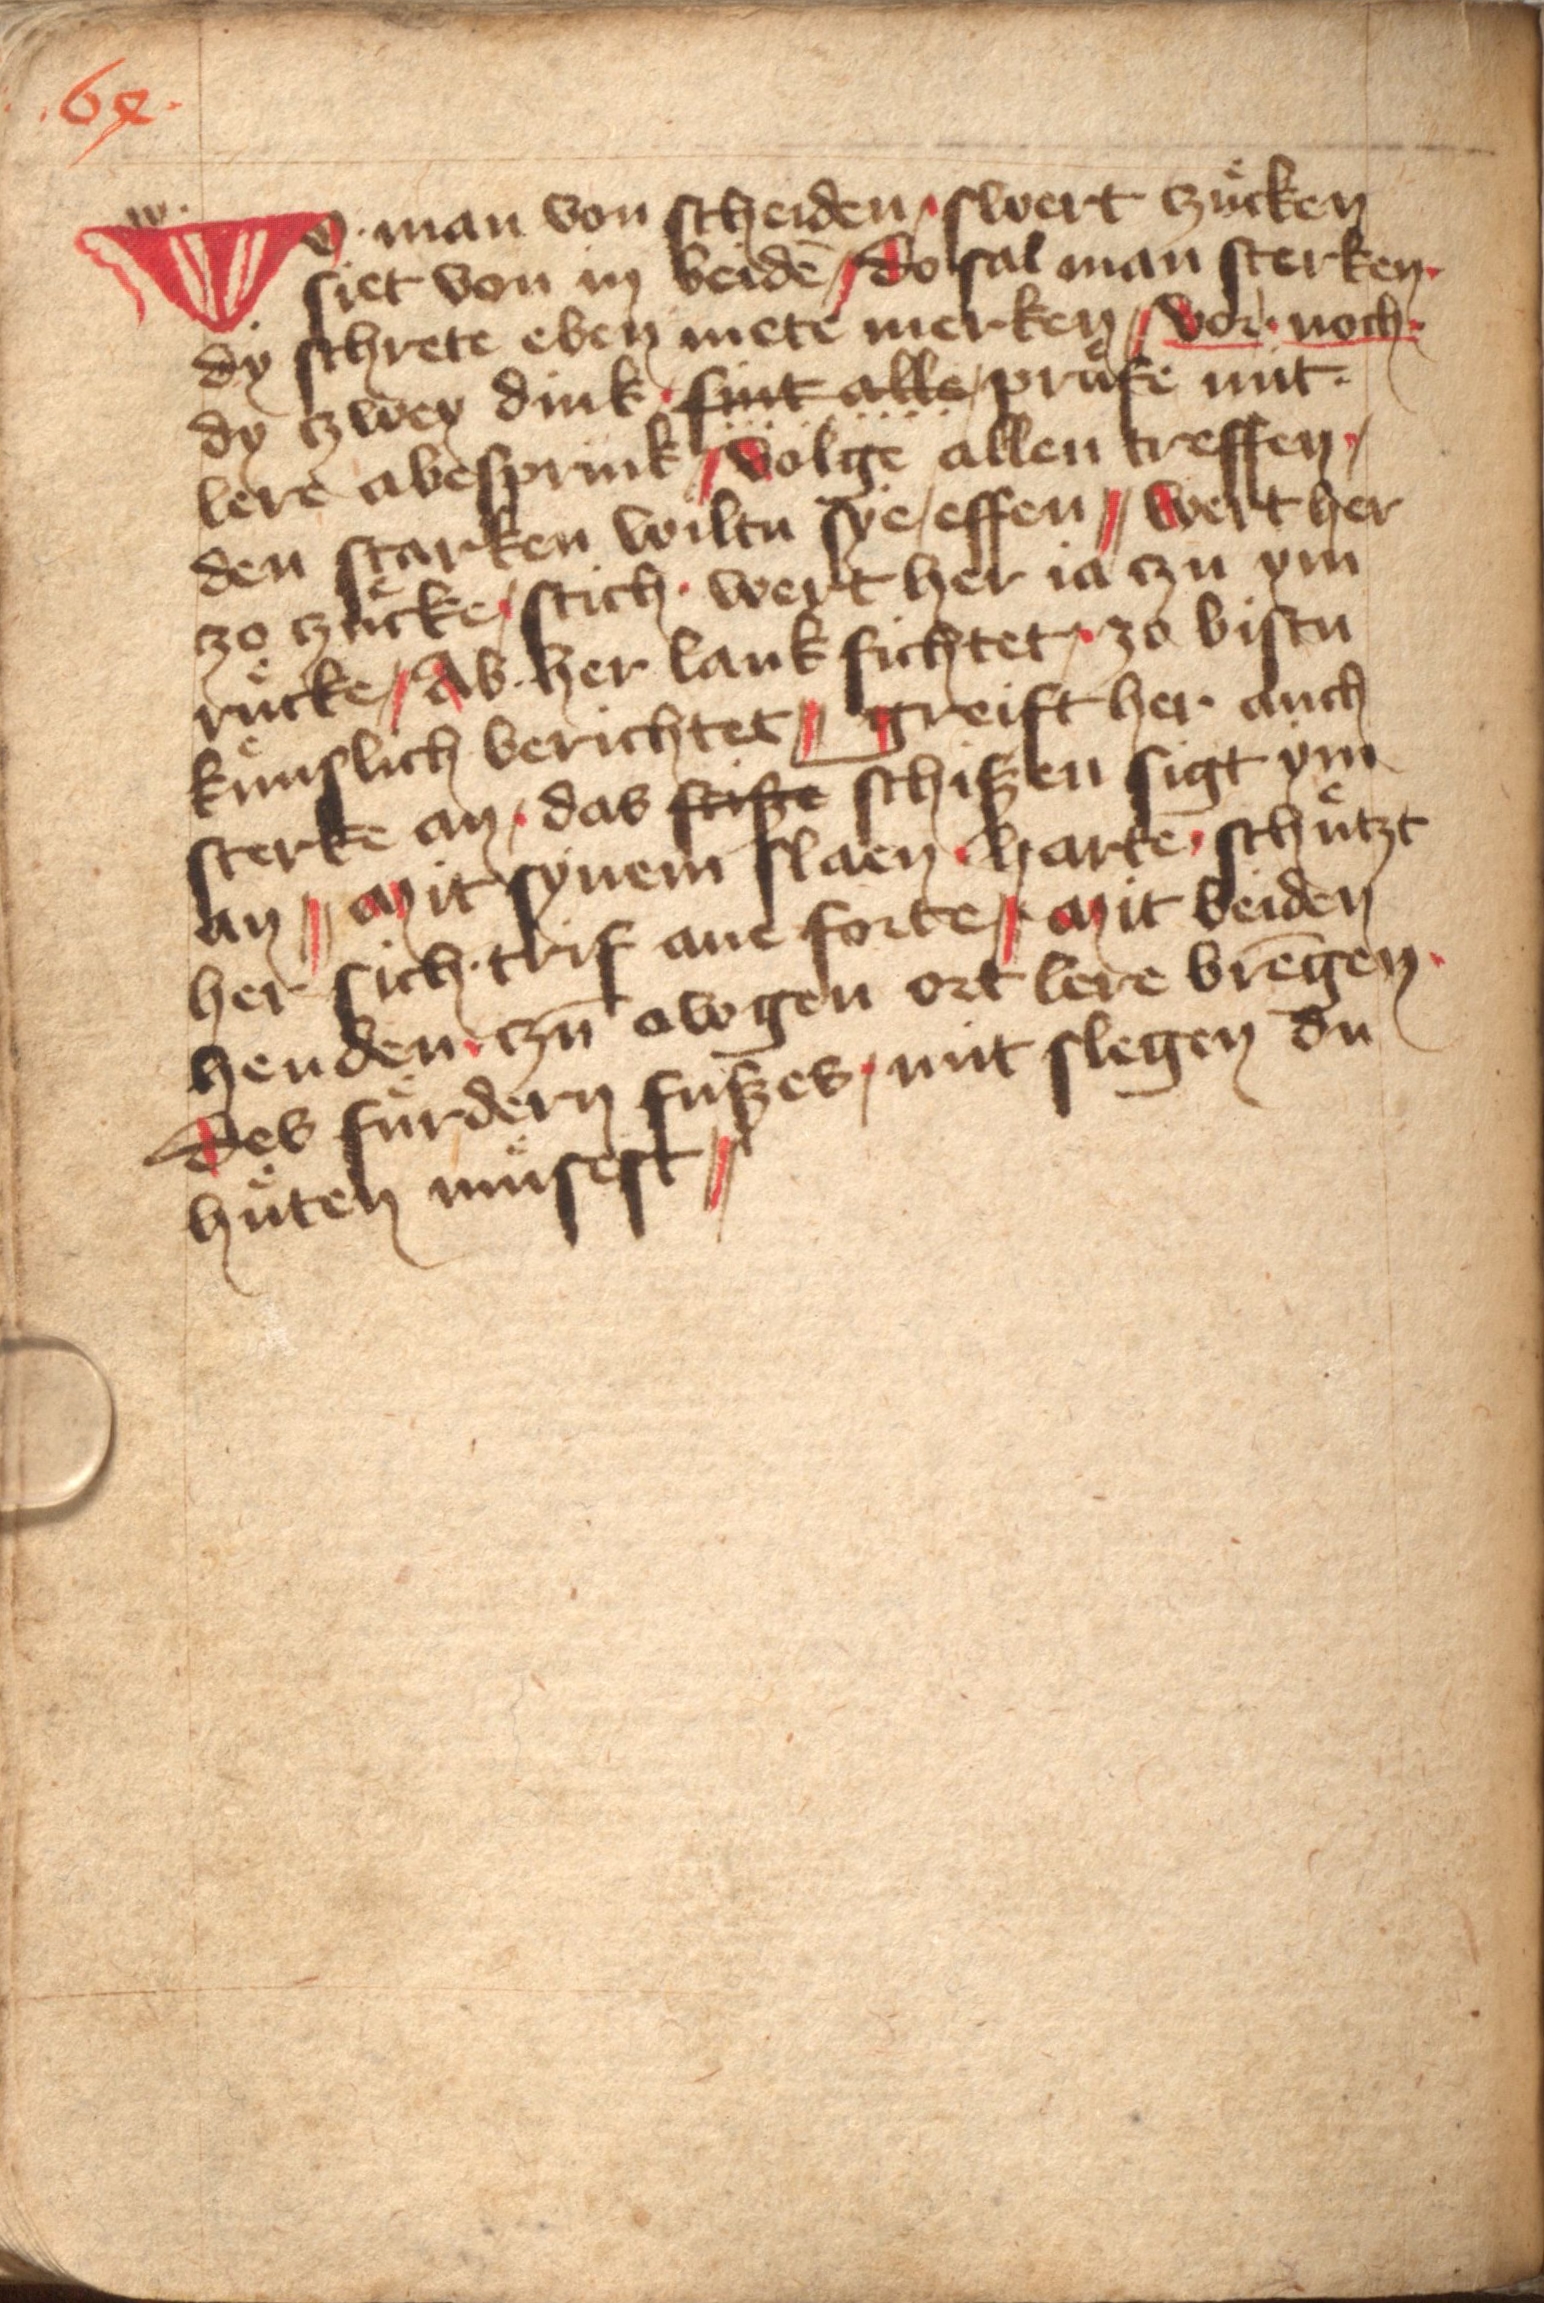 .64.
w.
Wo · man von scheiden · swert czücken
siet von in beidē / do sal man sterken ·
dy schrete eben mete merken / vor · noch ·
dy czwey dink · sint alle / prüfe mit ·
lere abesprink / volge allen treffen /
den starken wiltu sye / effen // wert her
zo czücke / stich · wert her ia czu ym
rücke / Ab · her lank fichtet · zo bistu
künslich berichtet // greift her · auch
sterke an · das schißen sigt ym
an // Mit synem slaen · harte · schützt
her sich · trif ane forte // Mit beiden
henden · czun awgen ort lere brēgen ·
des fürdern fußes · mit slegen du
hüten müsest //